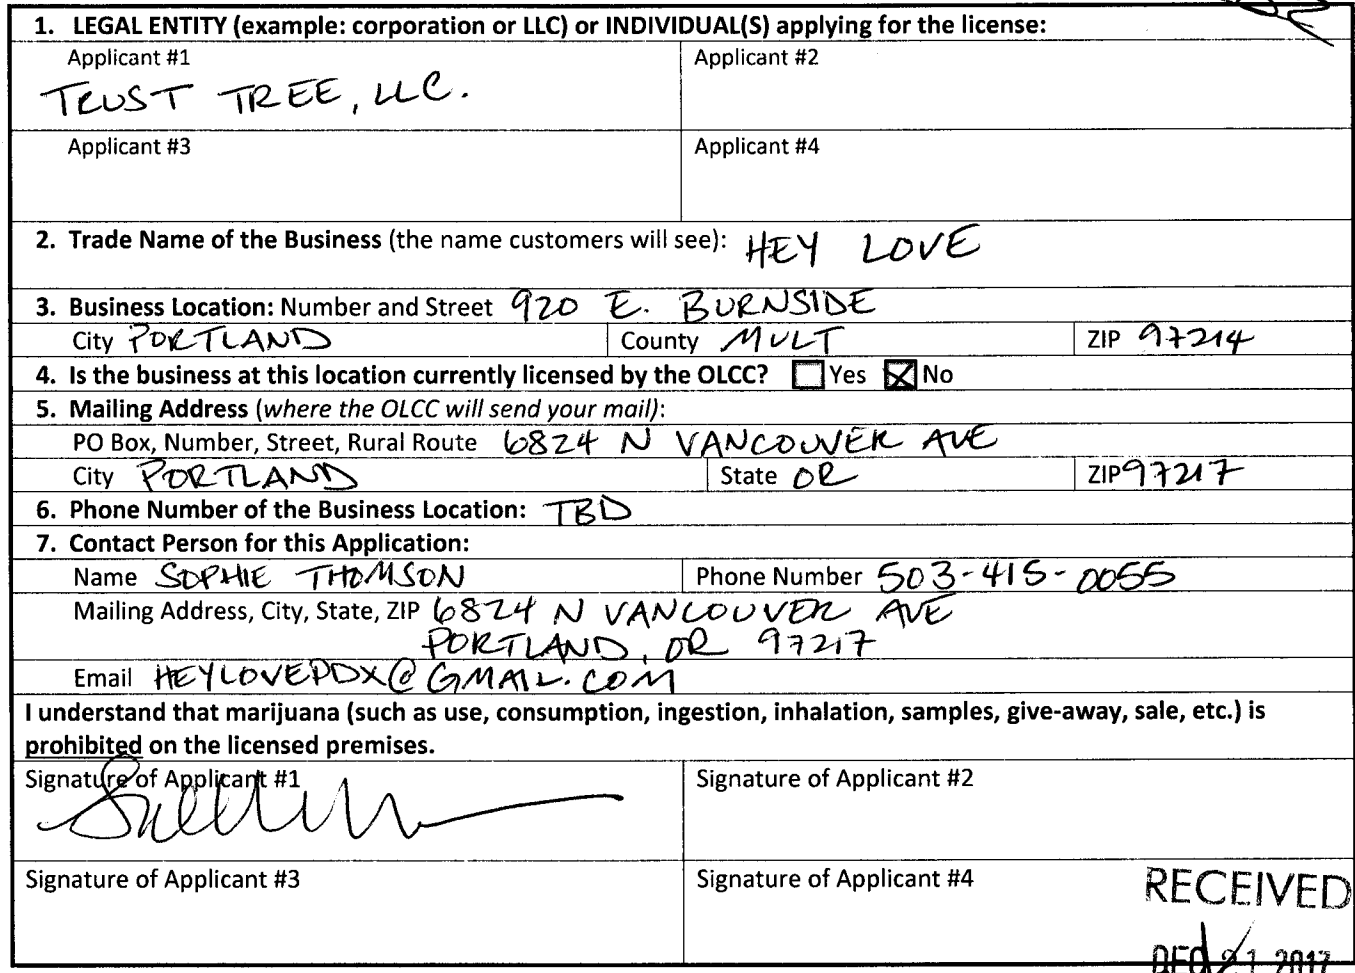 1. LEGAL ENTITY (example: corporation or LLC) or INDIVIDUAL(S) applying for the license:
Applicant #1
Applicant #2
TRUST TREE, LLC.
Applicant #3
Applicant #4
2. Trade Name of the Business (the name customers will see): HEY LOVE
3. Business Location: Number and Street 920 E. BURNSIDE
City PORTLAND County MULT ZIP 97214
4. Is the business at this location currently licensed by the OLCC? Yes No
5. Mailing Address (where the OLCC will send your mail):
PO Box, Number, Street, Rural Route 6824 N VANCOUVER AVE
City PORTLAND State OR ZIP 97217
6. Phone Number of the Business Location: TBD
7. Contact Person for this Application:
Name SOPHIE THOMSON Phone Number 503-415-0055
Mailing Address, City, State, ZIP 6824 N VANCOUVER AVE
PORTLAND, OR 97217
Email HEYLOVEPDX@GMAIL.COM
I understand that marijuana (such as use, consumption, ingestion, inhalation, samples, give-away, sale, etc.) is
prohibited on the licensed premises.
Signature of Applicant #1
Signature of Applicant #2
Signature of Applicant #3
Signature of Applicant #4
RECEIVED
DEC 21 2017